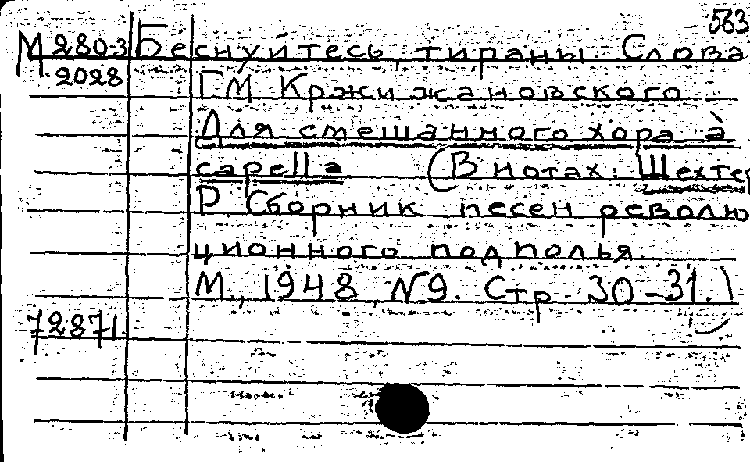 563
М 280-3 Беснуйтесь, тираны. Слова
2028 Г.М Кржижановского
Для смешанного хора à
capella (В нотах: Шехтер
Р Сборник песен револю
ционного подполья.
М., 1948, №9. Стр. 30-31.)
72871